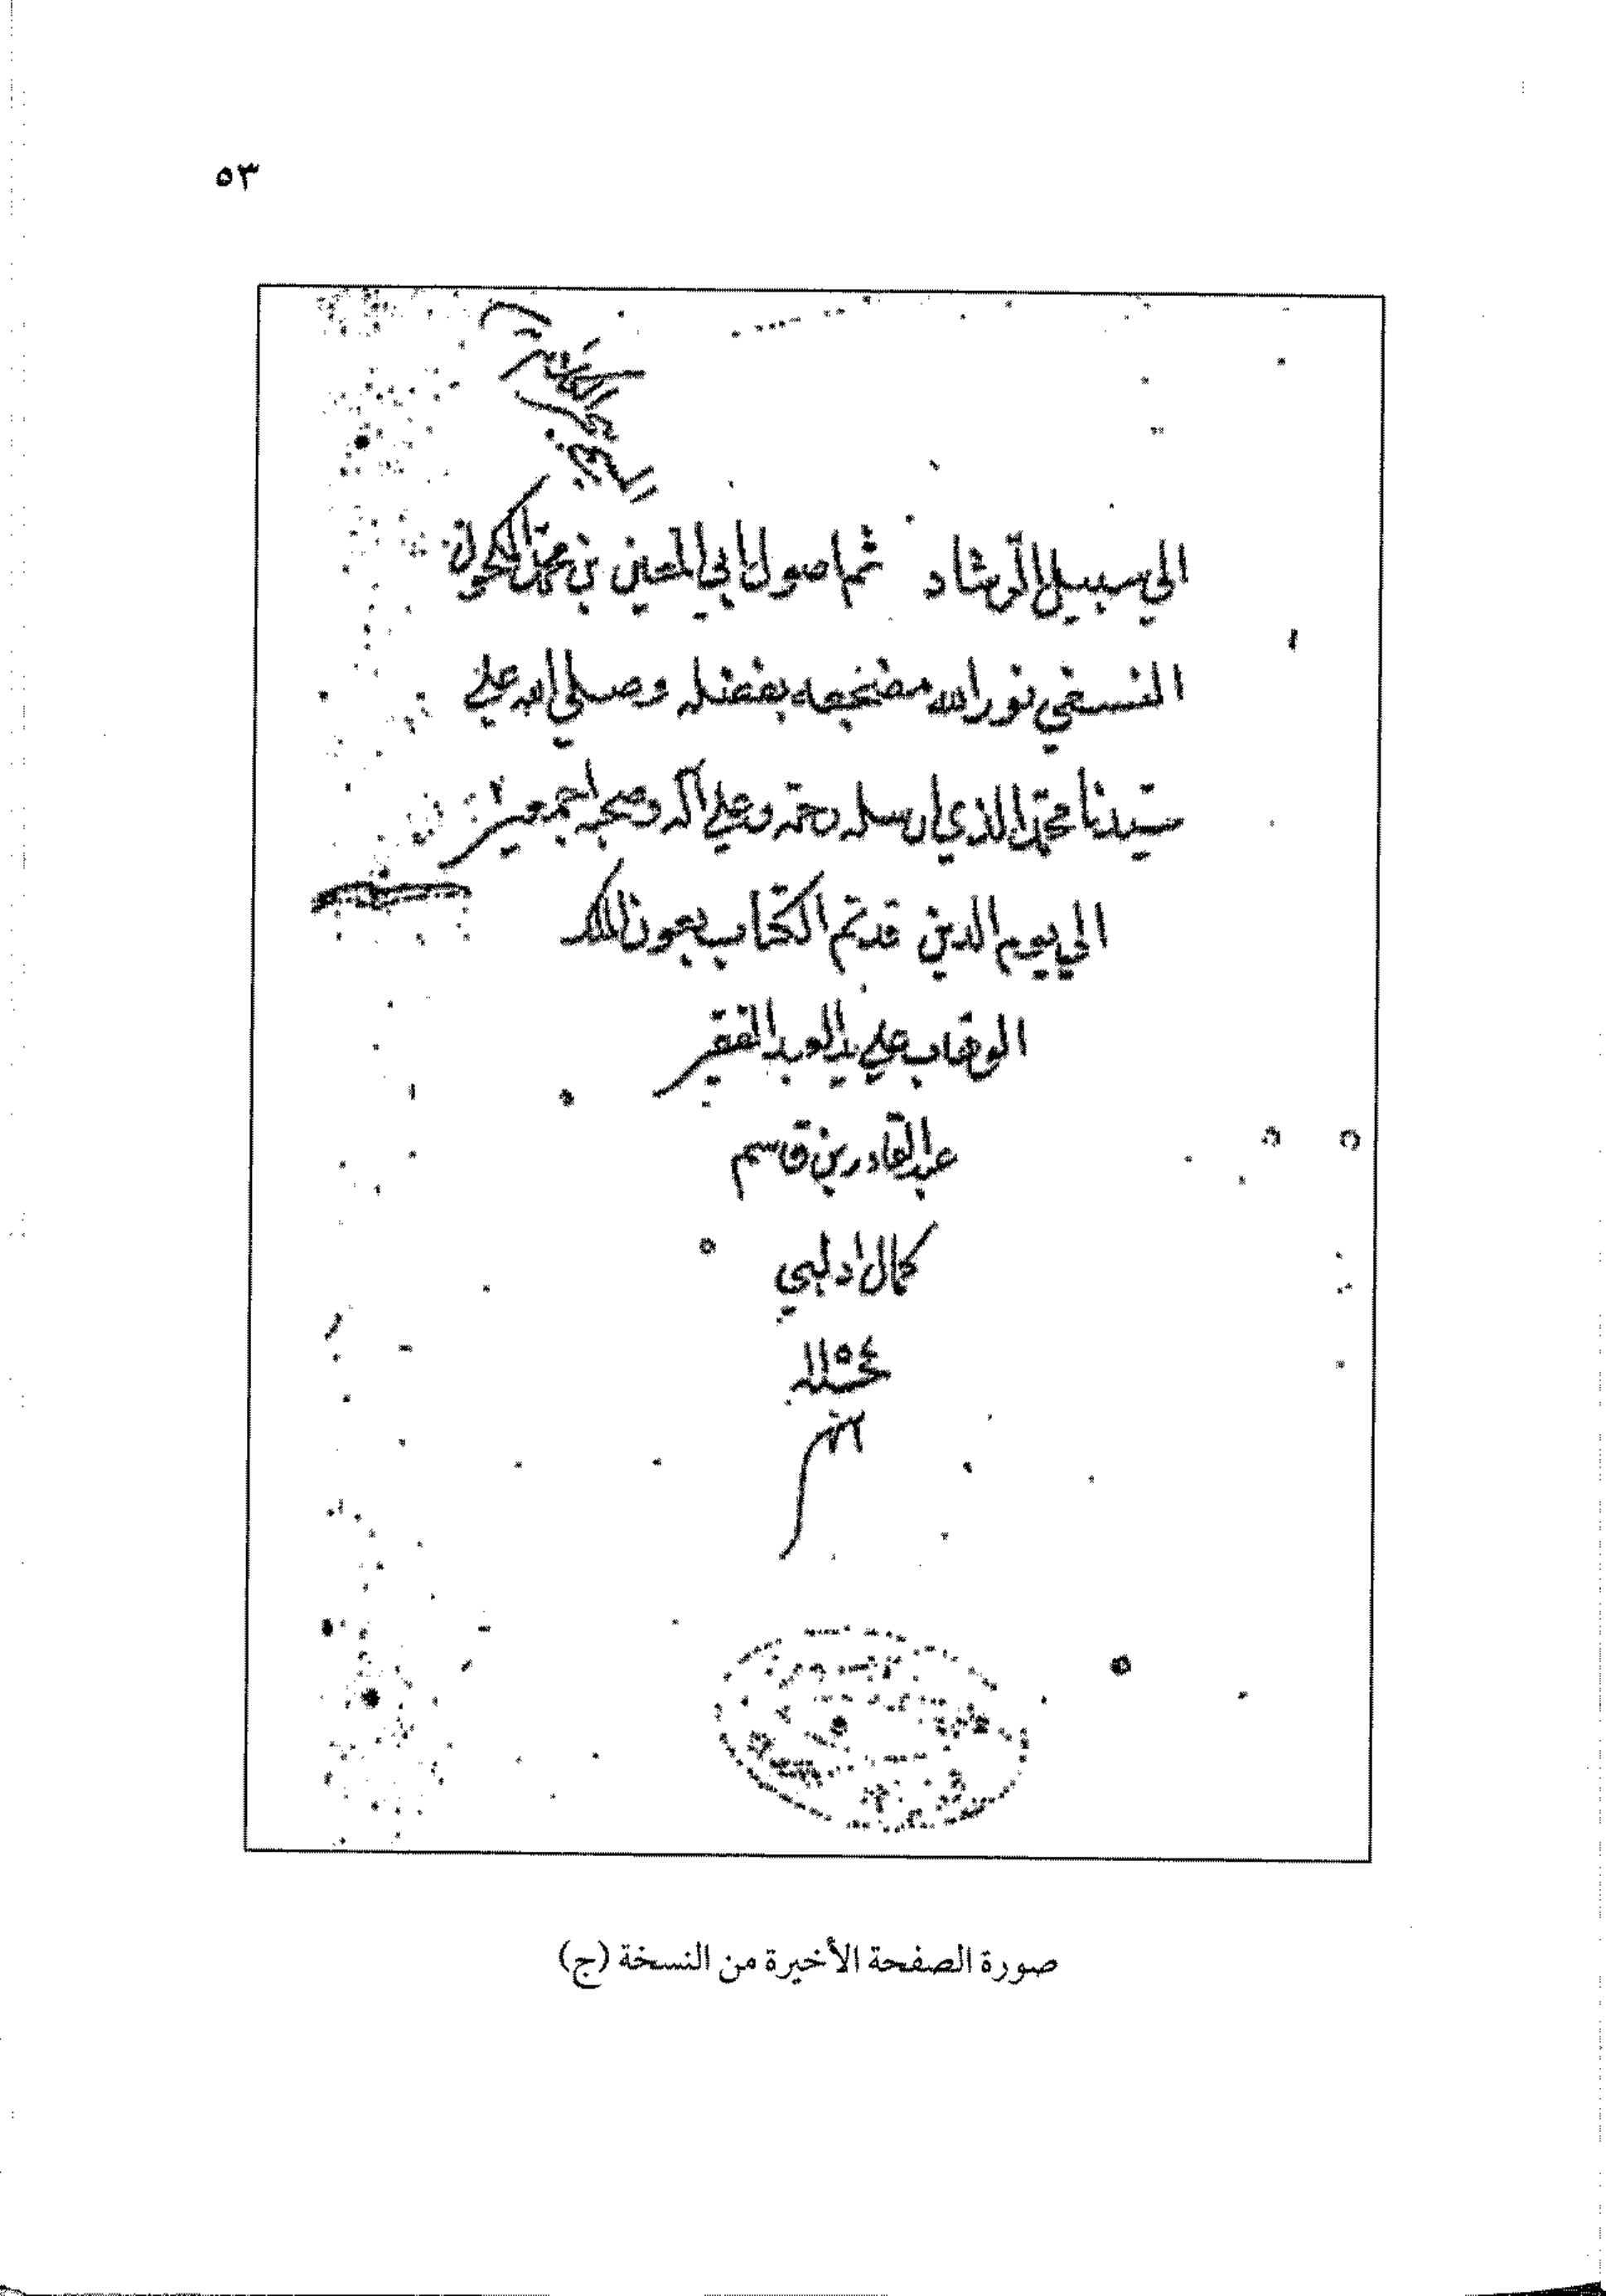 ٥٣
الي سبيل الرشاد ثم اصول ابي المعين بن محمد المكحول
النسفي نور الله مضجعه بفضله وصلي الله علي
سيدنا محمد الذي ارسله رحمة وعلي آله وصحبه اجمعين
الي يوم الدين قد تم الكتاب بعون الملك
الوهاب علي يد العبد الفقير
عبد القادر بن قاسم
كمال ادلبي
١١٥٤ سنة
صورة الصفحة الأخيرة من النسخة (ج)